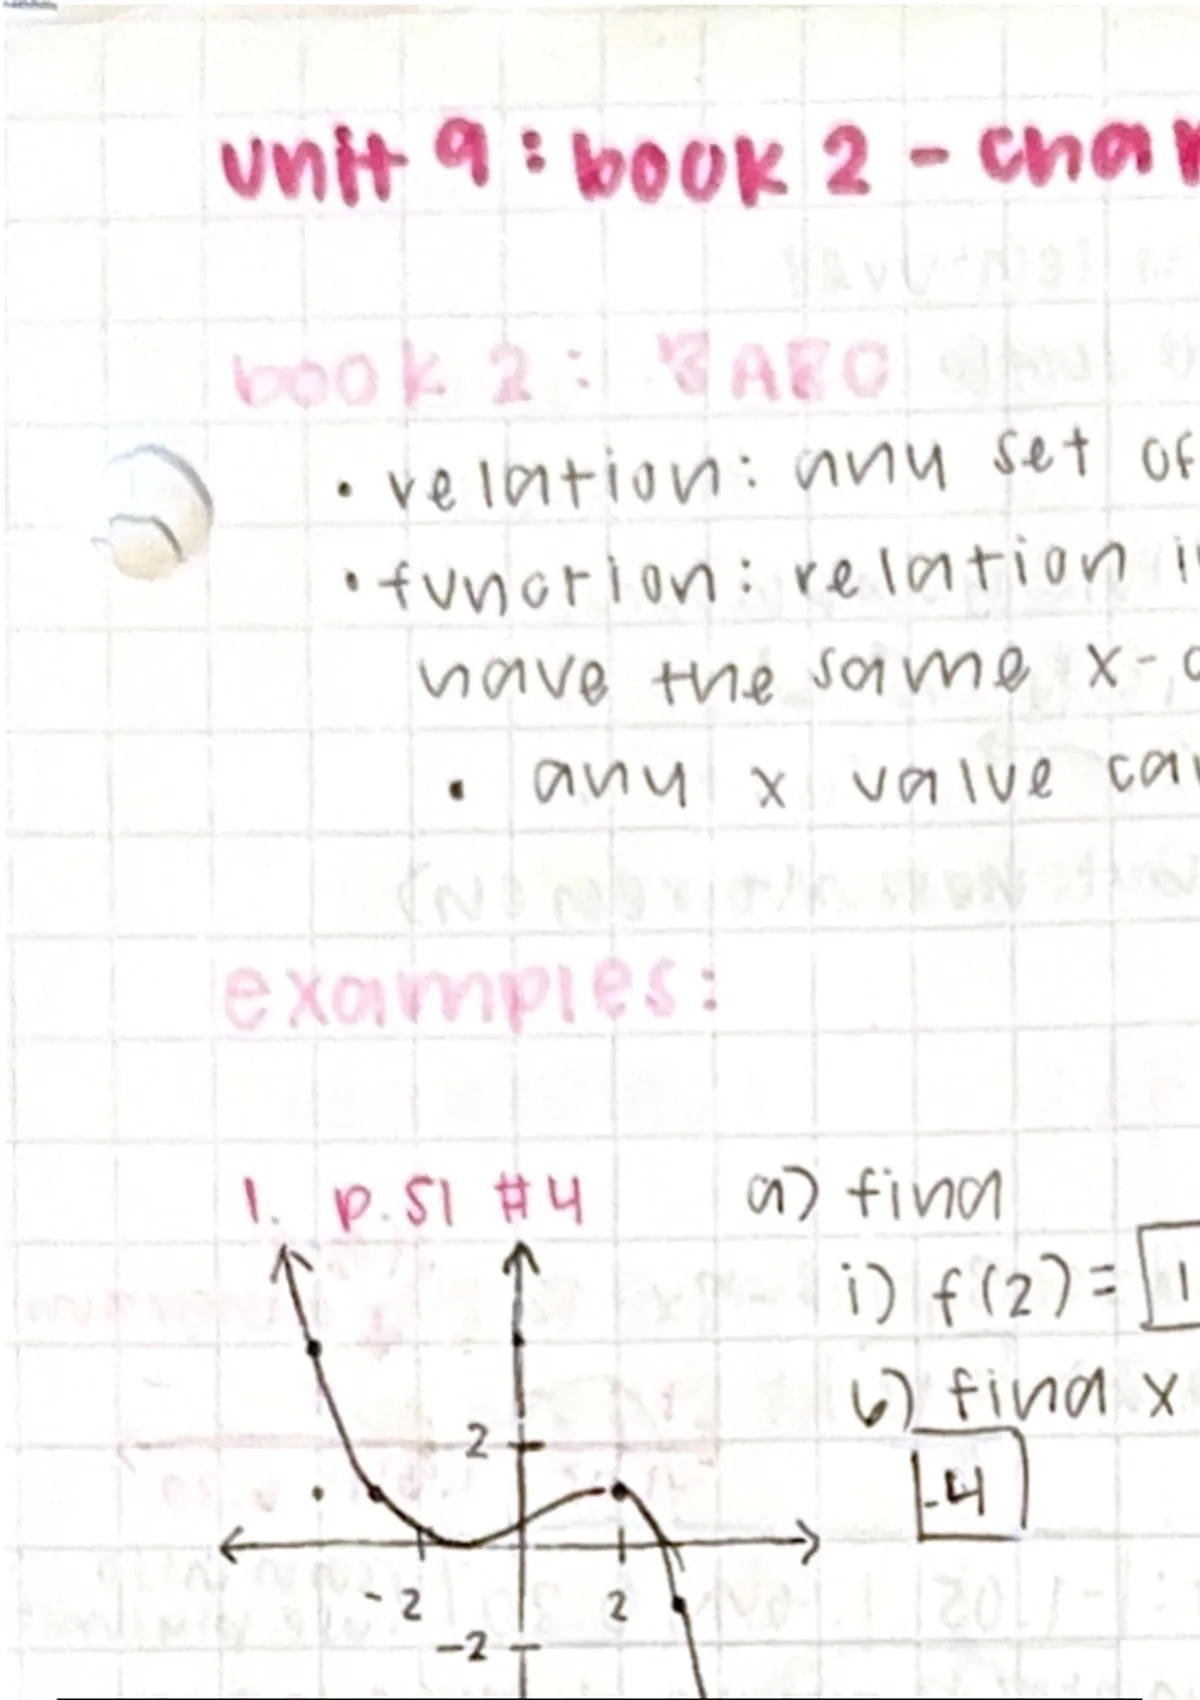 unit 9: book 2 - char
book 2: BAEC
• relation: any set of
• function: relation i
have the same x-c
• any x value ca
examples:
1. p.51 #4
a) find
i) f(2) = 1
b) find x
-4
2
-2
2
-2